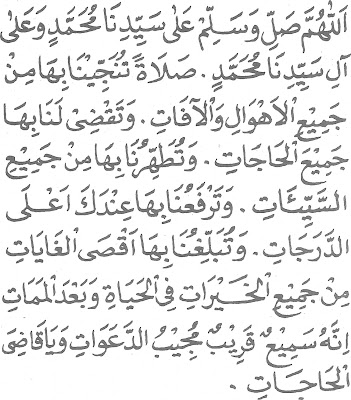 اَللّٰهُمَّ صَلِّ وَسَلِّمْ عَلٰى سَيِّدِنَا مُحَمَّدٍ وَعَلٰى
آلِ سَيِّدِنَا مُحَمَّدٍ . صَلَاةً تُنْجِيْنَا بِهَا مِنْ
جَمِيْعِ الْاَهْوَالِ وَالْآفَاتِ . وَتَقْضِىْ لَنَا بِهَا
جَمِيْعَ الْحَاجَاتِ . وَتُطَهِّرُنَا بِهَا مِنْ جَمِيْعِ
السَّيِّئَاتِ . وَتَرْفَعُنَا بِهَا عِنْدَكَ اَعْلَى
الدَّرَجَاتِ . وَتُبَلِّغُنَا بِهَا اَقْصَى الْغَايَاتِ
مِنْ جَمِيْعِ الْخَيْرَاتِ فِى الْحَيَاةِ وَبَعْدَ الْمَمَاتِ
اِنَّهُ سَمِيْعٌ قَرِيْبٌ مُجِيْبُ الدَّعَوَاتِ وَيَا قَاضِىَ
الْحَاجَاتِ .